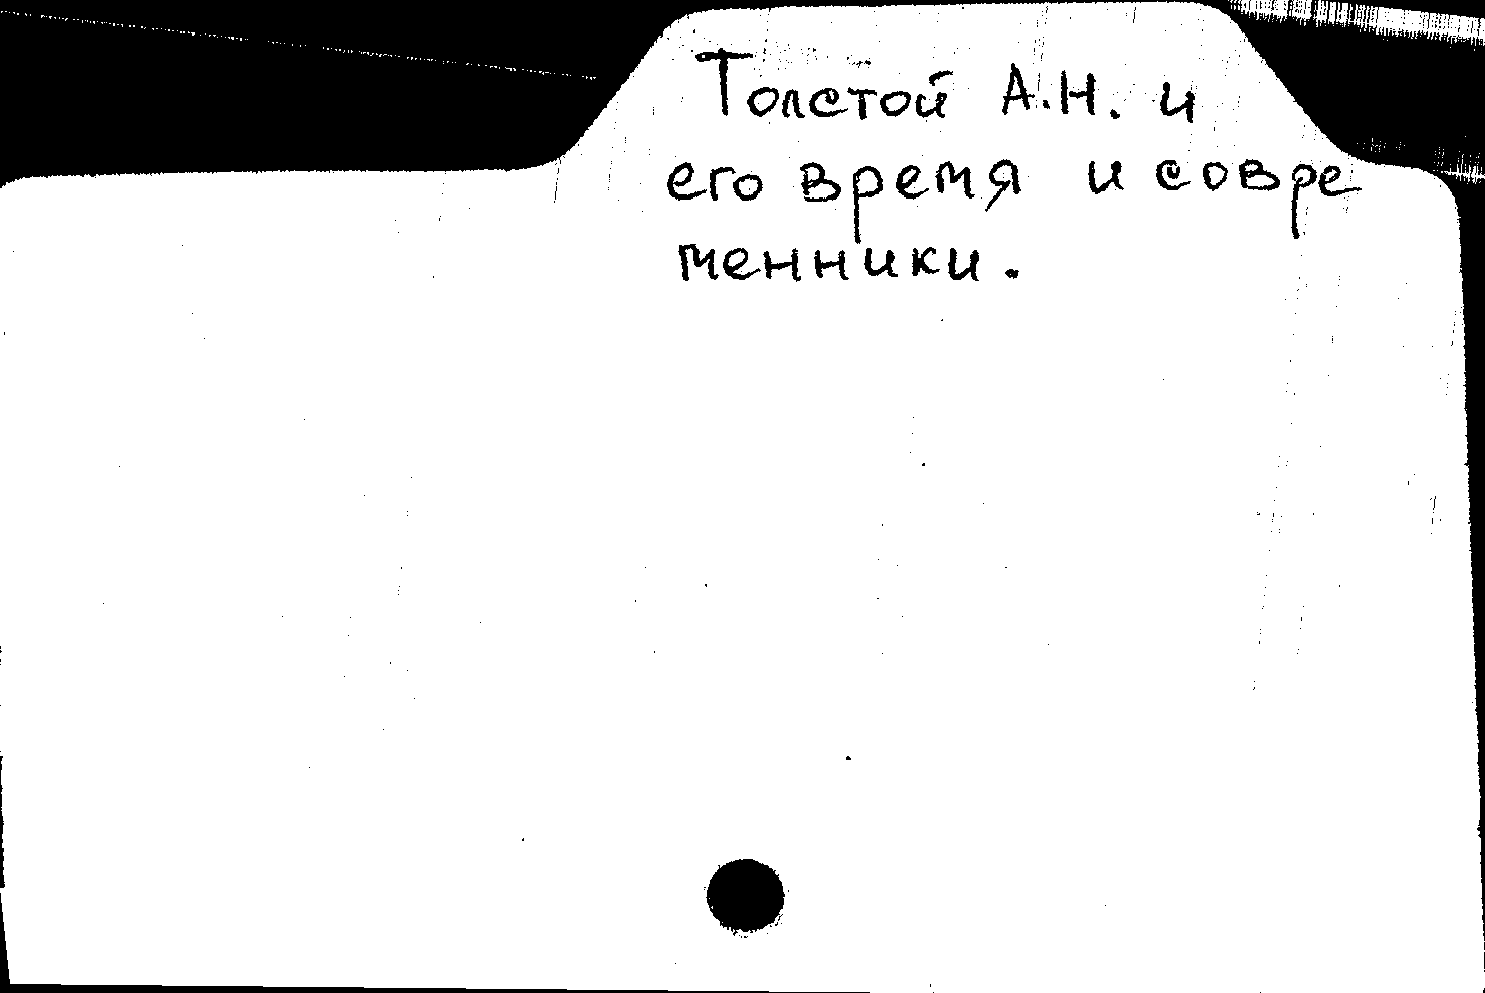 Толстой А.Н. и
его время и совре
менники.